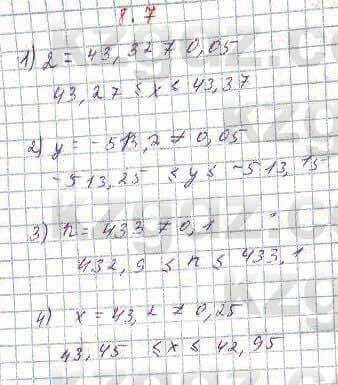 1.7
1) 2 = 43,32 ± 0,05
43,27 ≤ x ≤ 43,37
2) y = -513,2 ± 0,05
-513,25 ≤ y ≤ -513,15
3) n = 433 ± 0,1
432,9 ≤ n ≤ 433,1
4) x = 43,2 ± 0,25
43,45 ≤ x ≤ 42,95